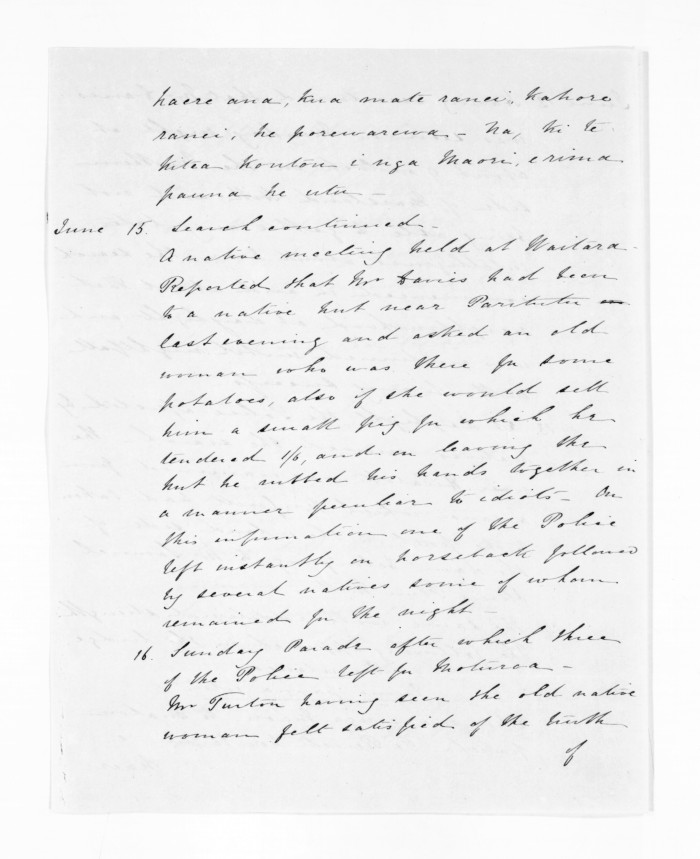 haere ana, kua mate ranei, Kahore
ranei, he porewarewa – Na, ki te
kitea Koutou i nga Maori, e rima
pauna he utu –
June 15. Search continued –
A native meeting held at Waitara –
Reported that Mr Davies had been
to a native hut near Paritutu –
last evening and asked an old
woman who was there for some
potatoes, also if she would sell
him a small pig for which he
tendered 1/6, and on leaving the
hut he rubbed his hands together in
a manner peculiar to idiots – On
this information one of the Police
left instantly on horseback followed
by several natives some of whom
remained for the night –
16. Sunday Parade after which three
of the Police left for Moturoa –
Mr Turton having seen the old native
woman felt satisfied of the truth
of